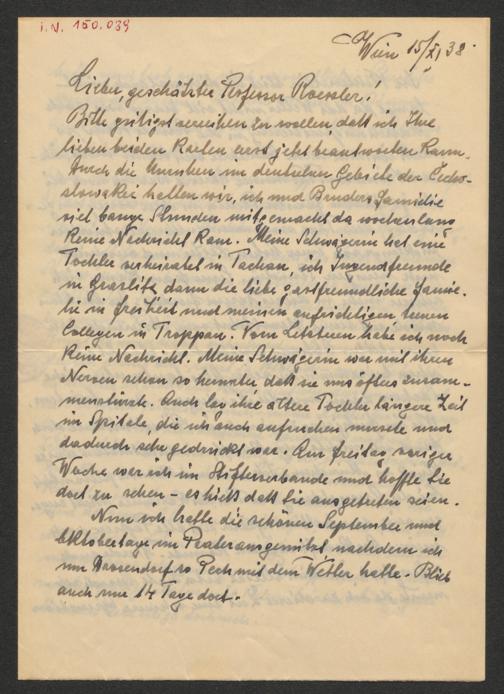 I.N. 150.039
Wien 15/XI, 38.
Lieber, geschätzter Professor Roessler!
Bitte gütigst verzeihen zu wollen, daß ich Ihre
lieben beiden Karten erst jetzt beantworten kann.
Durch die Unruhen im deutschen Gebiete der Tschecho-
slowakei hatten wir, ich und Bruders Familie
viel bange Stunden mitgemacht da wochenlang
keine Nachricht kam. Meine Schwägerin hat eine
Tochter verheiratet in Tachau, ich Jugendfreunde
in Graslitz dann die liebe, gastfreundliche Fami-
lie in Freiheit und meinen aufrichtigen treuen
Collegen in Troppau. Vom Letzteren habe ich noch
keine Nachricht. Meine Schwägerin war mit ihren
Nerven schon so herunter daß sie uns öfters zusam-
menstürzte. Auch lag ihre ältere Tochter längere Zeit
im Spitale, die ich auch aufsuchen musste und
dadurch sehr gedrückt war. Am Freitag voriger
Woche war ich im Stifterverbande und hoffte Sie
dort zu sehen – es hieß daß Sie ausgetreten seien.
Nun ich hatte die schönen September und
Oktobertage im Prater ausgenützt nachdem ich
nur Drosendorf so Pech mit dem Wetter hatte. Blieb
auch nur 14 Tage dort.